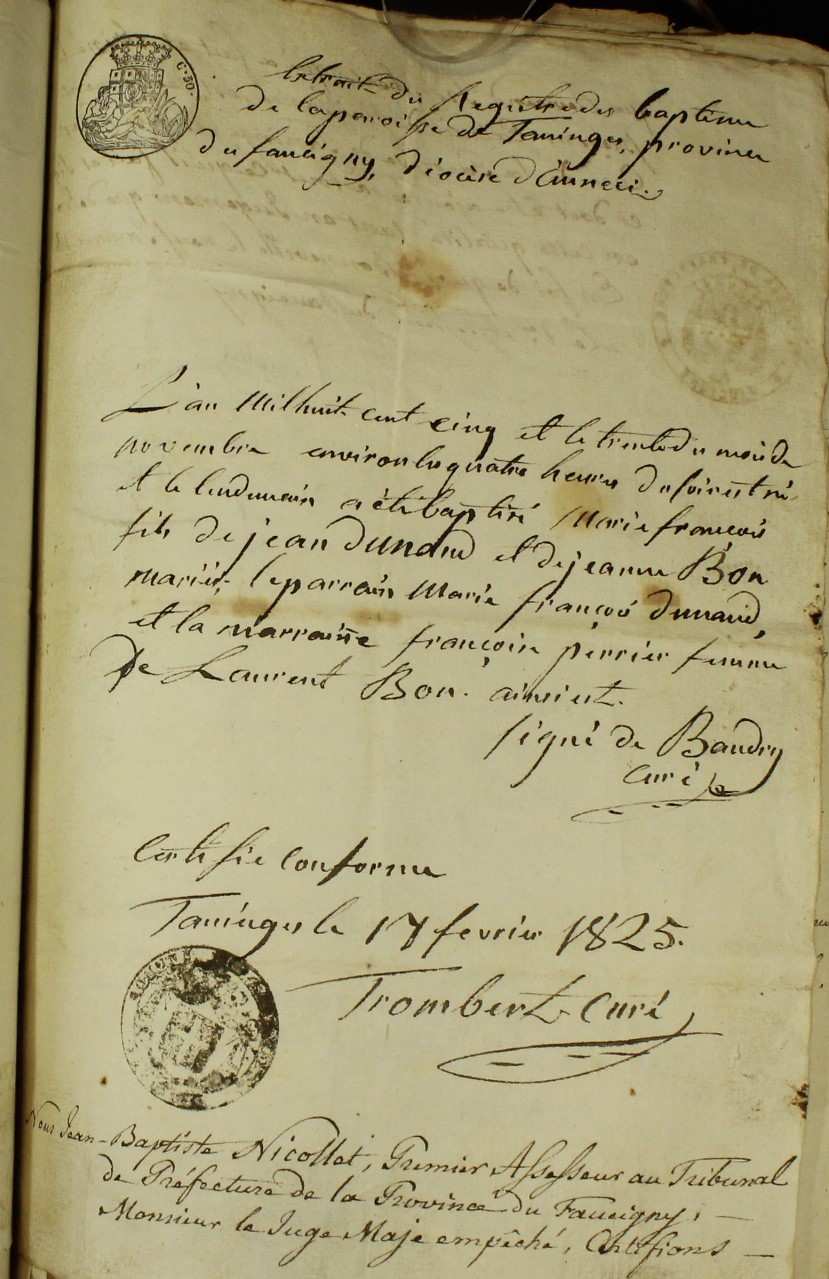 C. 50.
Extrait du Registre des baptême
de la paroisse de Taninges, province
du faucigny, diocèse d'Anneci.
L'an milhuit cent cinq et le trente du mois de
novembre environ les quatre heures du soir est né
et le lendemain a été baptisé Marie françois
fils de jean dunand et de jeanne Bon
mariés, le parrain Marie françois dunand,
et la marraine françoise perrier femme
de Laurent Bon. ainsi est.
signé de Baudry
curé
Certifié conforme
Taninges le 17 fevrier 1825.
Trombert Curé
Nous Jean-Baptiste Nicollet, Premier Assesseur au Tribunal
de Préfecture de la Province du Faucigny, —
Monsieur le Juge Maje empêché, Certifions —